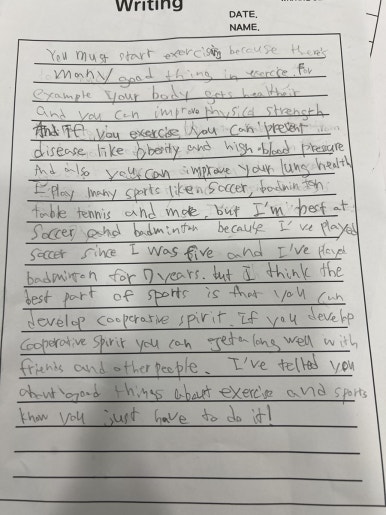 Writing
DATE.
NAME.
You must start exercising because there's
many good thing in exercise. For
example your body gets healthier
and you can improve physical strength
And If you exercise you can present
disease like obesity and high blood pressure
And also you can improve your lung health
I play many sports like soccer, badminton
table tennis and more, but I'm best at
Soccer and badminton because I've played
soccer since I was five and I've played
badminton for 7 years. but I think the
best part of sports is that you can
develop cooperative spirit. If you develop
cooperative spirit you can get along well with
friends and other people. I've telled you
about good things about exercise and sports
know you just have to do it!